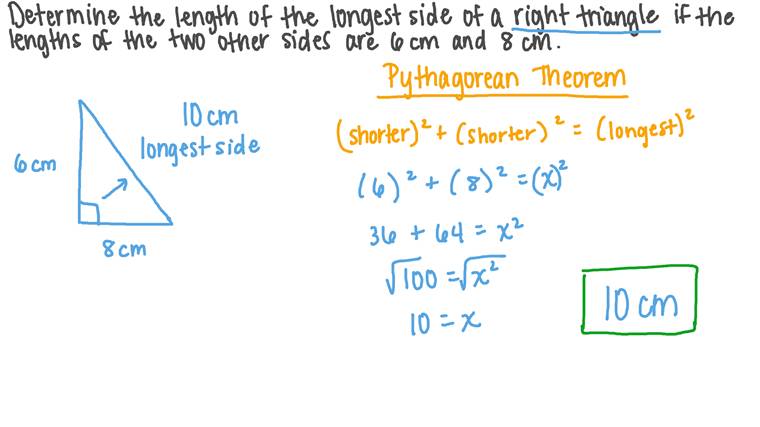 Determine the length of the longest side of a right triangle if the
lengths of the two other sides are 6 cm and 8 cm.
Pythagorean Theorem
10 cm
longest side
6 cm
8 cm
(shorter)² + (shorter)² = (longest)²
(6)² + (8)² = (x)²
36 + 64 = x²
√100 = √x²
10 = x
10 cm